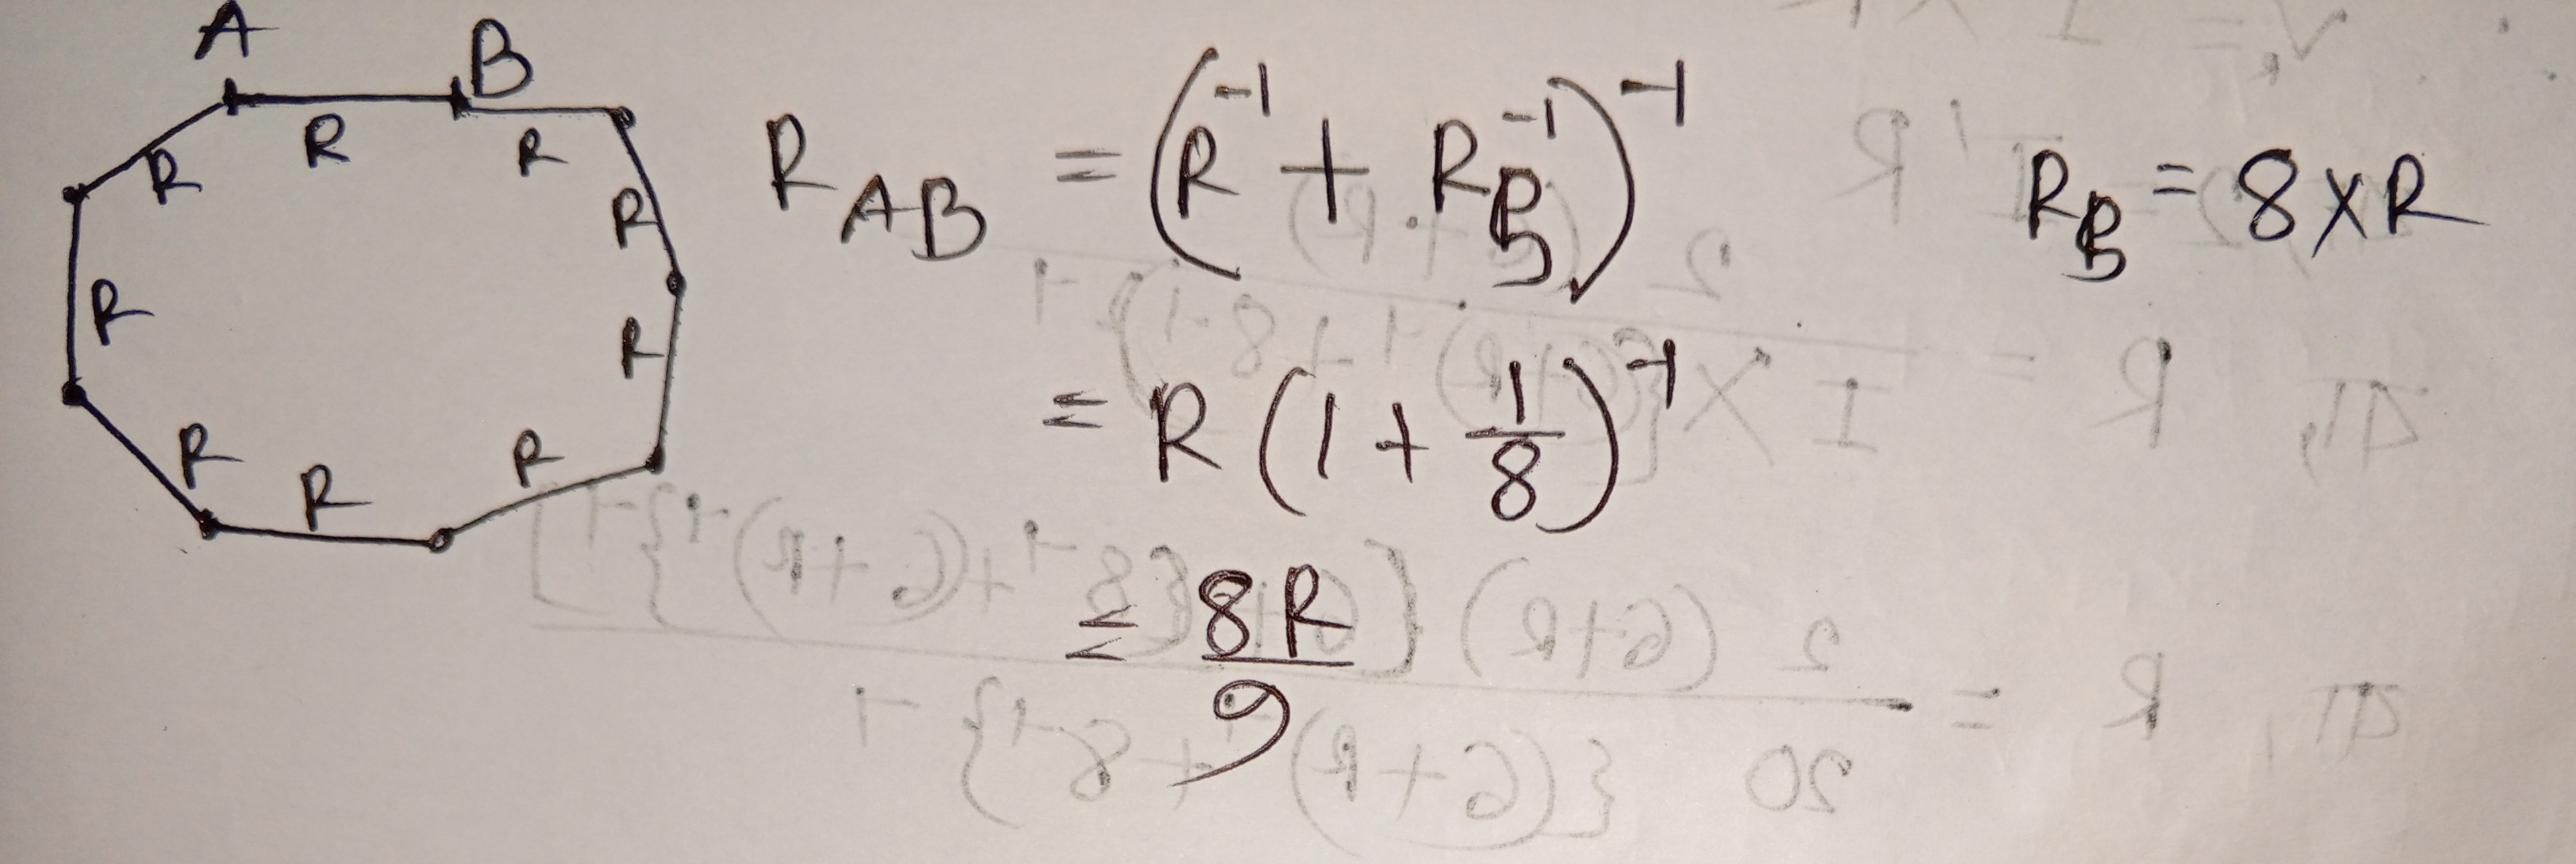 A B
R R R
R
R R
R R R
R_AB = (R^-1 + R_B^-1)^-1 R_B = 8 × R
= R (1 + 1/8)^-1
= 8R/9